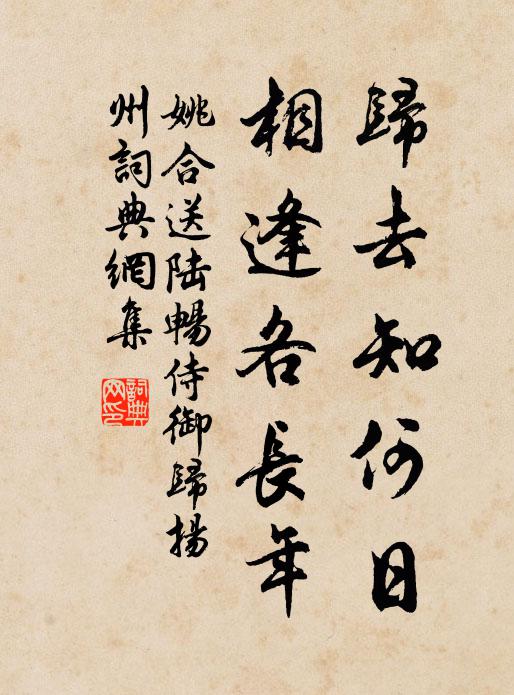 歸去知何日
相逢各長年
姚合送陆暢侍御歸揚
州詞典網集
詞典
网印